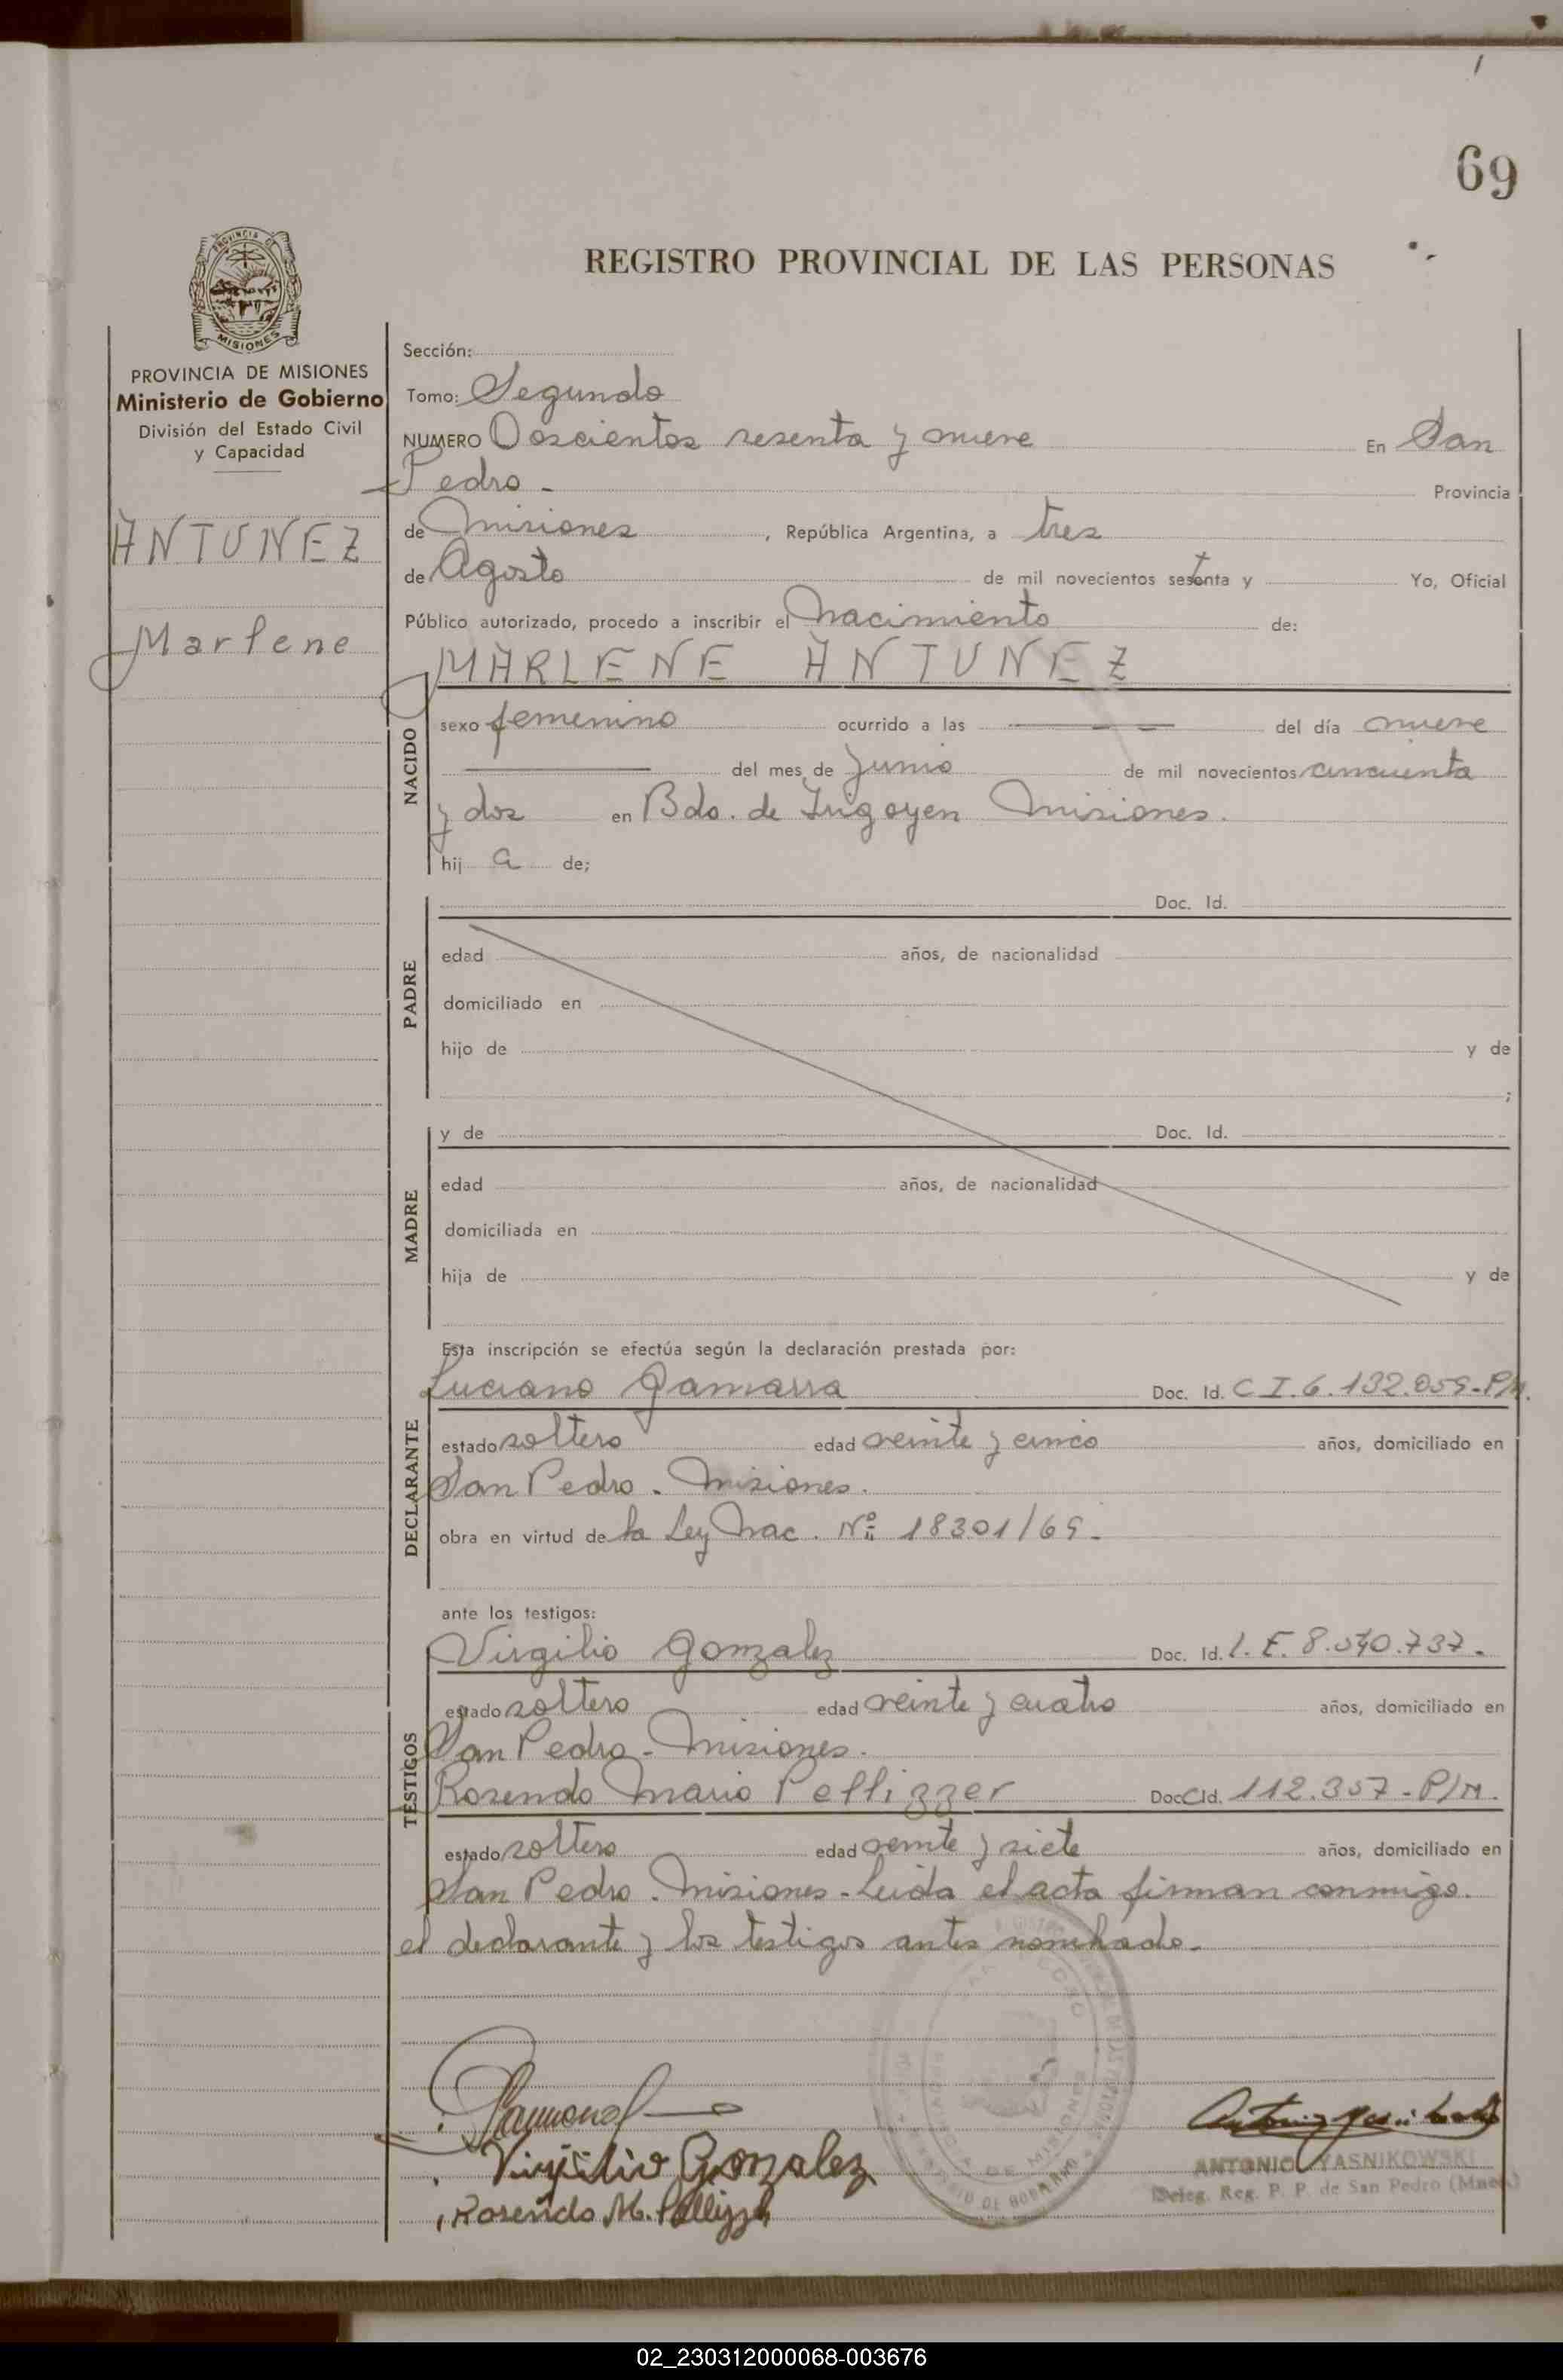 69
REGISTRO PROVINCIAL DE LAS PERSONAS
PROVINCIA DE
MISIONES
PROVINCIA DE MISIONES
Ministerio de Gobierno
División del Estado Civil
y Capacidad
ANTUNEZ
Marlene
Sección:
Tomo: Segundo
NUMERO Doscientos sesenta y nueve En San
Pedro - Provincia
de Misiones, República Argentina, a tres
de Agosto de mil novecientos setenta y Yo, Oficial
Público autorizado, procedo a inscribir el Nacimiento de:
MARLENE ANTUNEZ
NACIDO
sexo femenino ocurrido a las del día nueve
del mes de Junio de mil novecientos cincuenta
y dos en Bdo. de Irigoyen Misiones.
hij a de;
PADRE
Doc. Id.
edad años, de nacionalidad
domiciliado en
hijo de y de
;
MADRE
y de Doc. Id.
edad años, de nacionalidad
domiciliada en
hija de y de
Esta inscripción se efectúa según la declaración prestada por:
DECLARANTE
Luciano Gamarra Doc. Id. C.I. 6.132.059-P/M.
estado soltero edad veinte y cinco años, domiciliado en
San Pedro. Misiones.
obra en virtud de la Ley Nac. Nº 18301/69-
ante los testigos:
TESTIGOS
Virgilio Gonzalez Doc. Id. L.E. 8.540.737-
estado soltero edad veinte y cuatro años, domiciliado en
San Pedro - Misiones.
Rosendo Mario Pellizzer Doc. Id. CI. 112.357-P/M.
estado soltero edad veinte y siete años, domiciliado en
San Pedro. Misiones - Leida el acta firman conmigo
el declarante y los testigos antes nombrado-
Virgilio Gonzalez
Rosendo M. Pellizzer
ANTONIO YASNIKOWSKI
Deleg. Reg. P. P. de San Pedro (Mnes.)
02_230312000068-003676